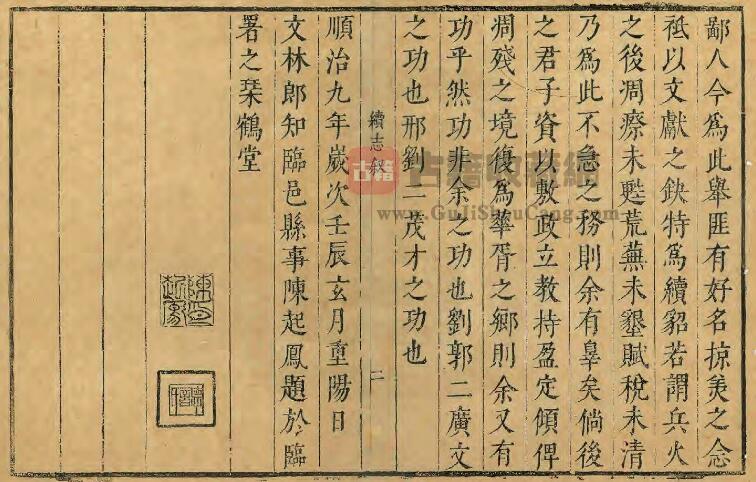 鄙人今爲此舉匪有好名掠美之念
祗以文獻之缺特爲續貂若謂兵火
之後凋瘵未甦荒蕪未墾賦稅未清
乃爲此不急之務則余有辠矣倘後
之君子資以敷政立教持盈定傾俾
凋殘之境復爲華胥之鄉則余又有
功乎然功非余之功也劉郭二廣文
之功也邢劉二茂才之功也
續志叙
二
順治九年歲次壬辰玄月重陽日
文林郎知臨邑縣事陳起鳳題於臨
署之琹鶴堂
古籍
古籍收藏網
www.GuJiShouCang.com